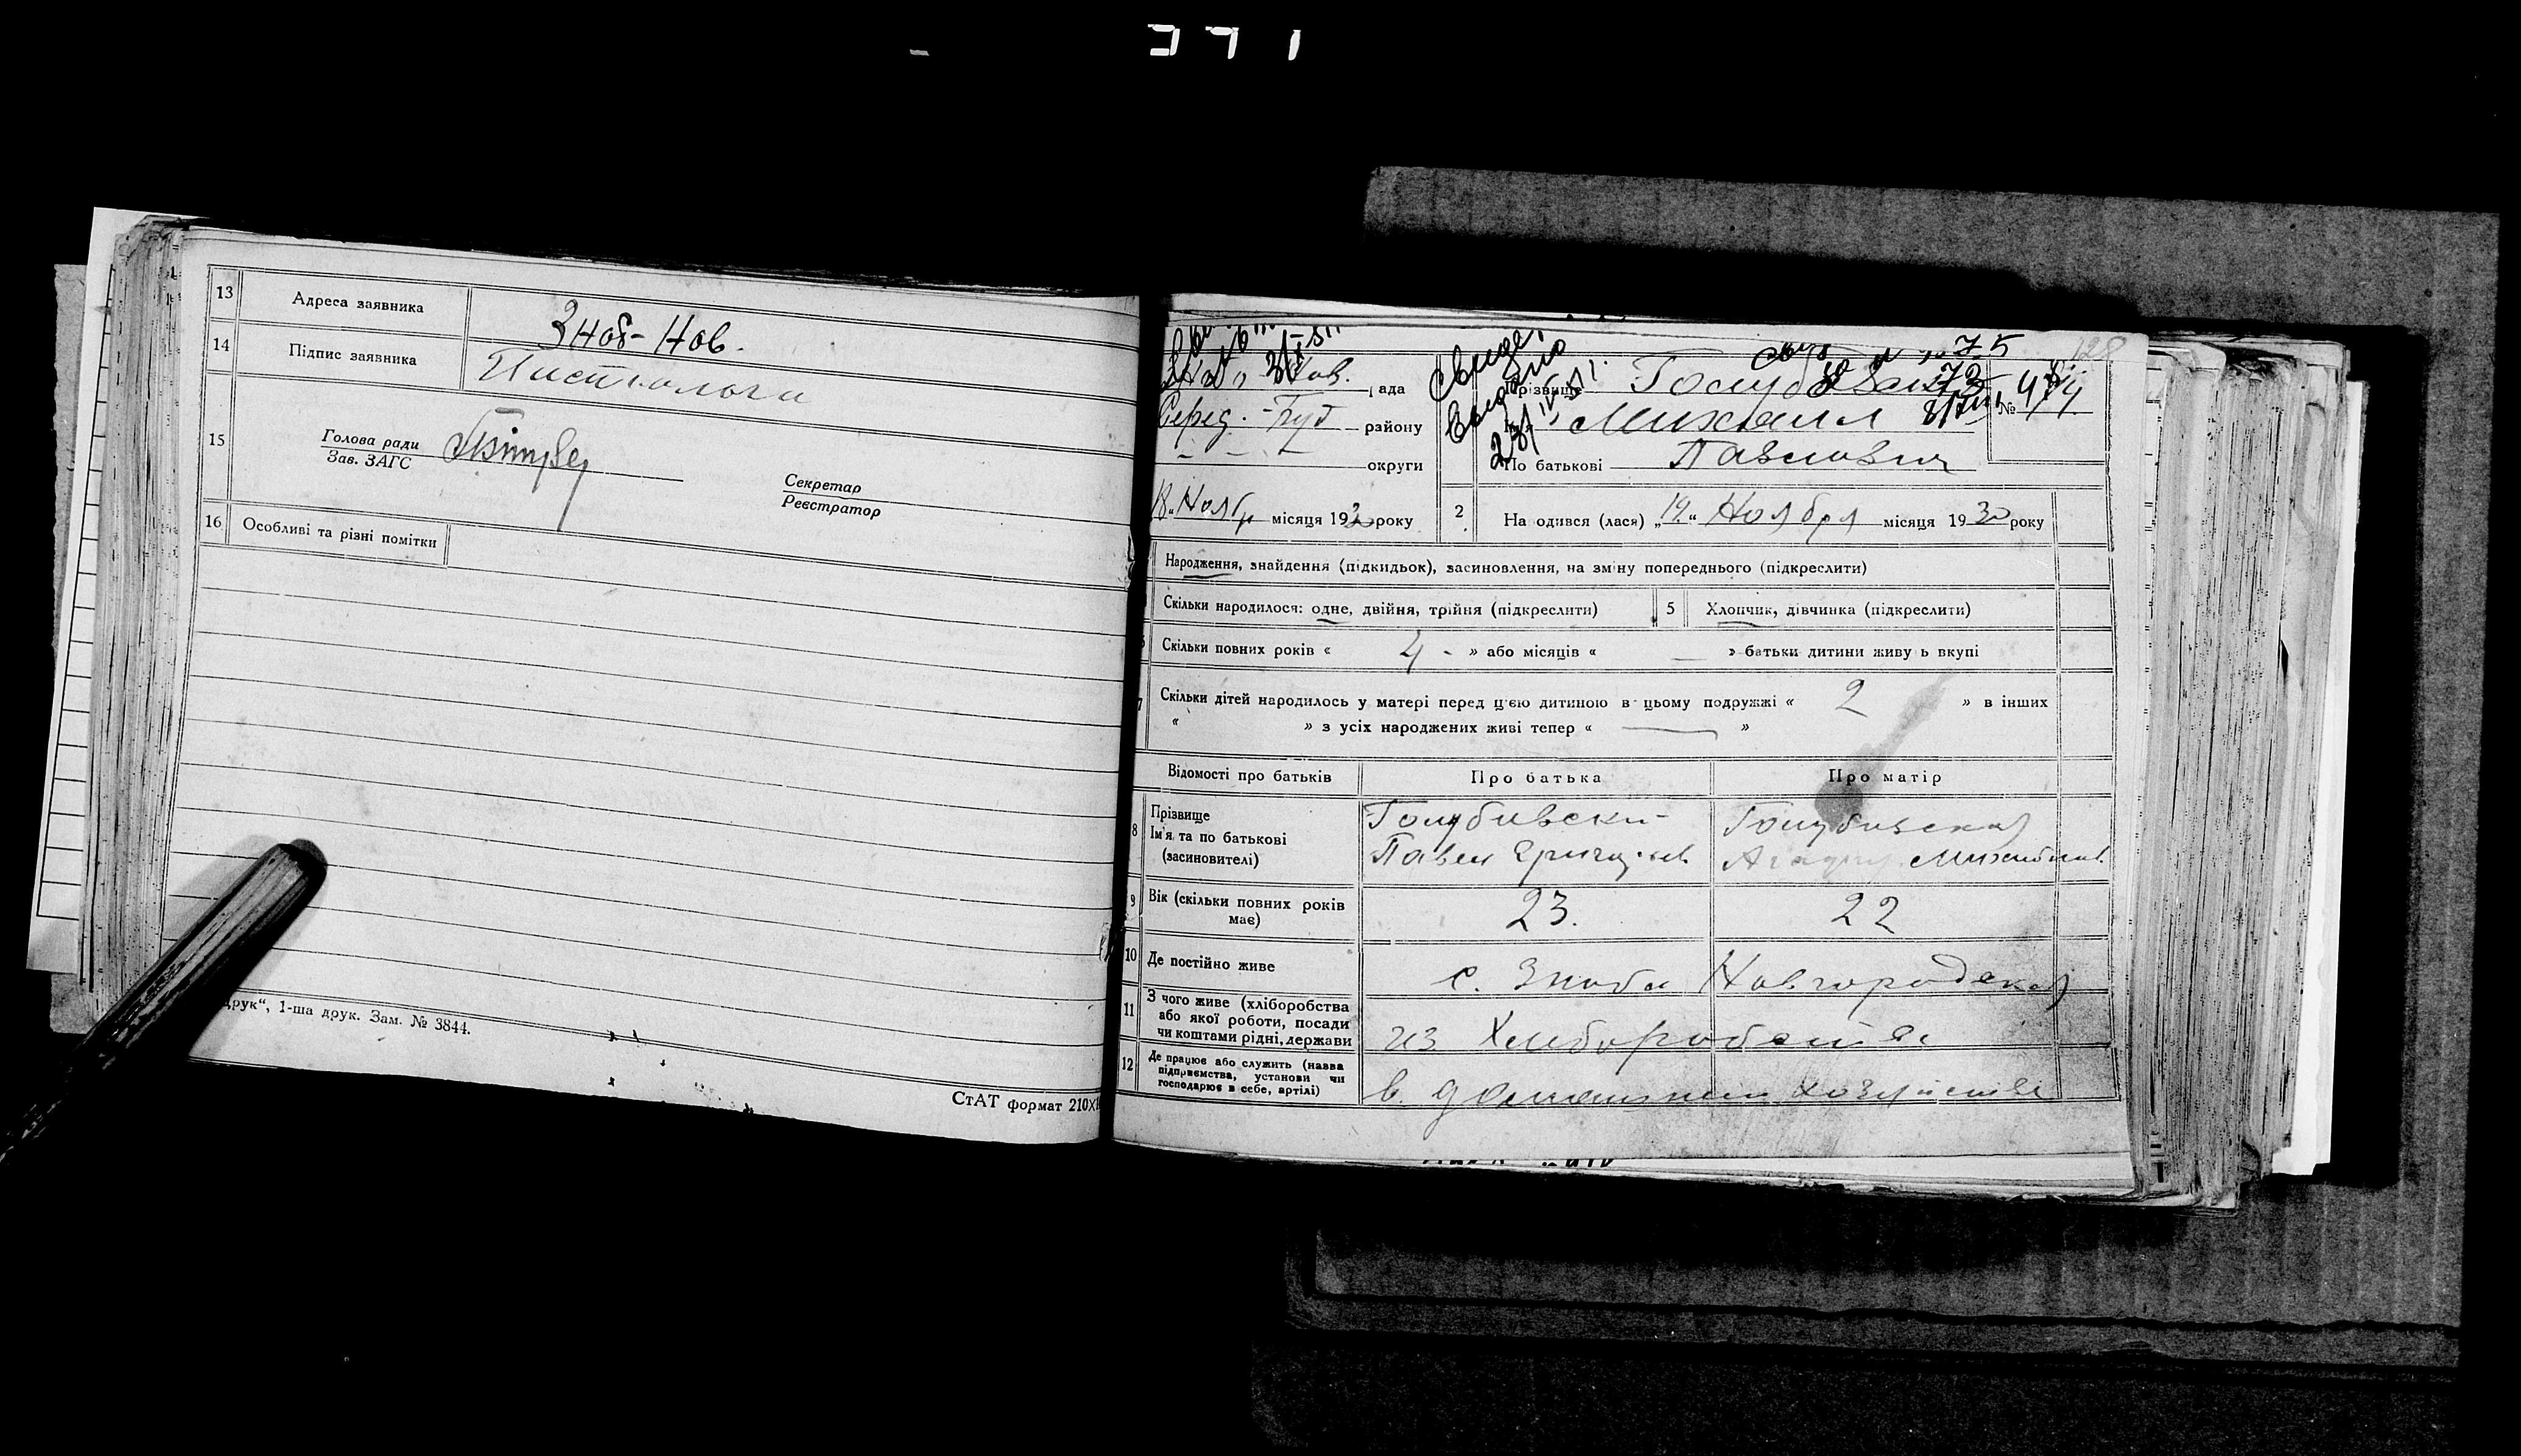 13 Адреса заявника Зноб-Нов.
14 Підпис заявника
15 Голова ради
Зав. ЗАГС
Секретар
Реєстратор
16 Особливі та різні помітки
друк“, 1-ша друк. Зам. № 3844.
СтАТ формат 210Х
128
Нов. рада
Серед.-Буд району
округи
Прізвище
№
Михаил
По батькові Павлович
18 Ноябр місяця 193 року
2 На одився (лася) „19“ Ноября місяця 1930 року
Народження, знайдення (підкидьок), засиновлення, на зміну попереднього (підкреслити)
Скільки народилося: одне, двійня, трійня (підкреслити)
5 Хлопчик, дівчинка (підкреслити)
Скільки повних років « 4 - » або місяців « — » батьки дитини живу ь вкупі
7 Скільки дітей народилось у матері перед цією дитиною в цьому подружжі « 2 » в інших
« » з усіх народжених живі тепер « — »
Відомості про батьків Про батька Про матір
8 Прізвище
Ім'я та по батькові
(засновителі)
Голубивски
Павел
Голубивская
9 Вік (скільки повних років має) 23. 22
10 Де постійно живе с. Зноби Новгородская
11 З чого живе (хліборобства
або якої роботи, посади
чи коштами рідні, держави
из
12 Де працює або служить (назва
підприємства, установи чи
господарює в себе, артілі)
в домашнем хозяйстве